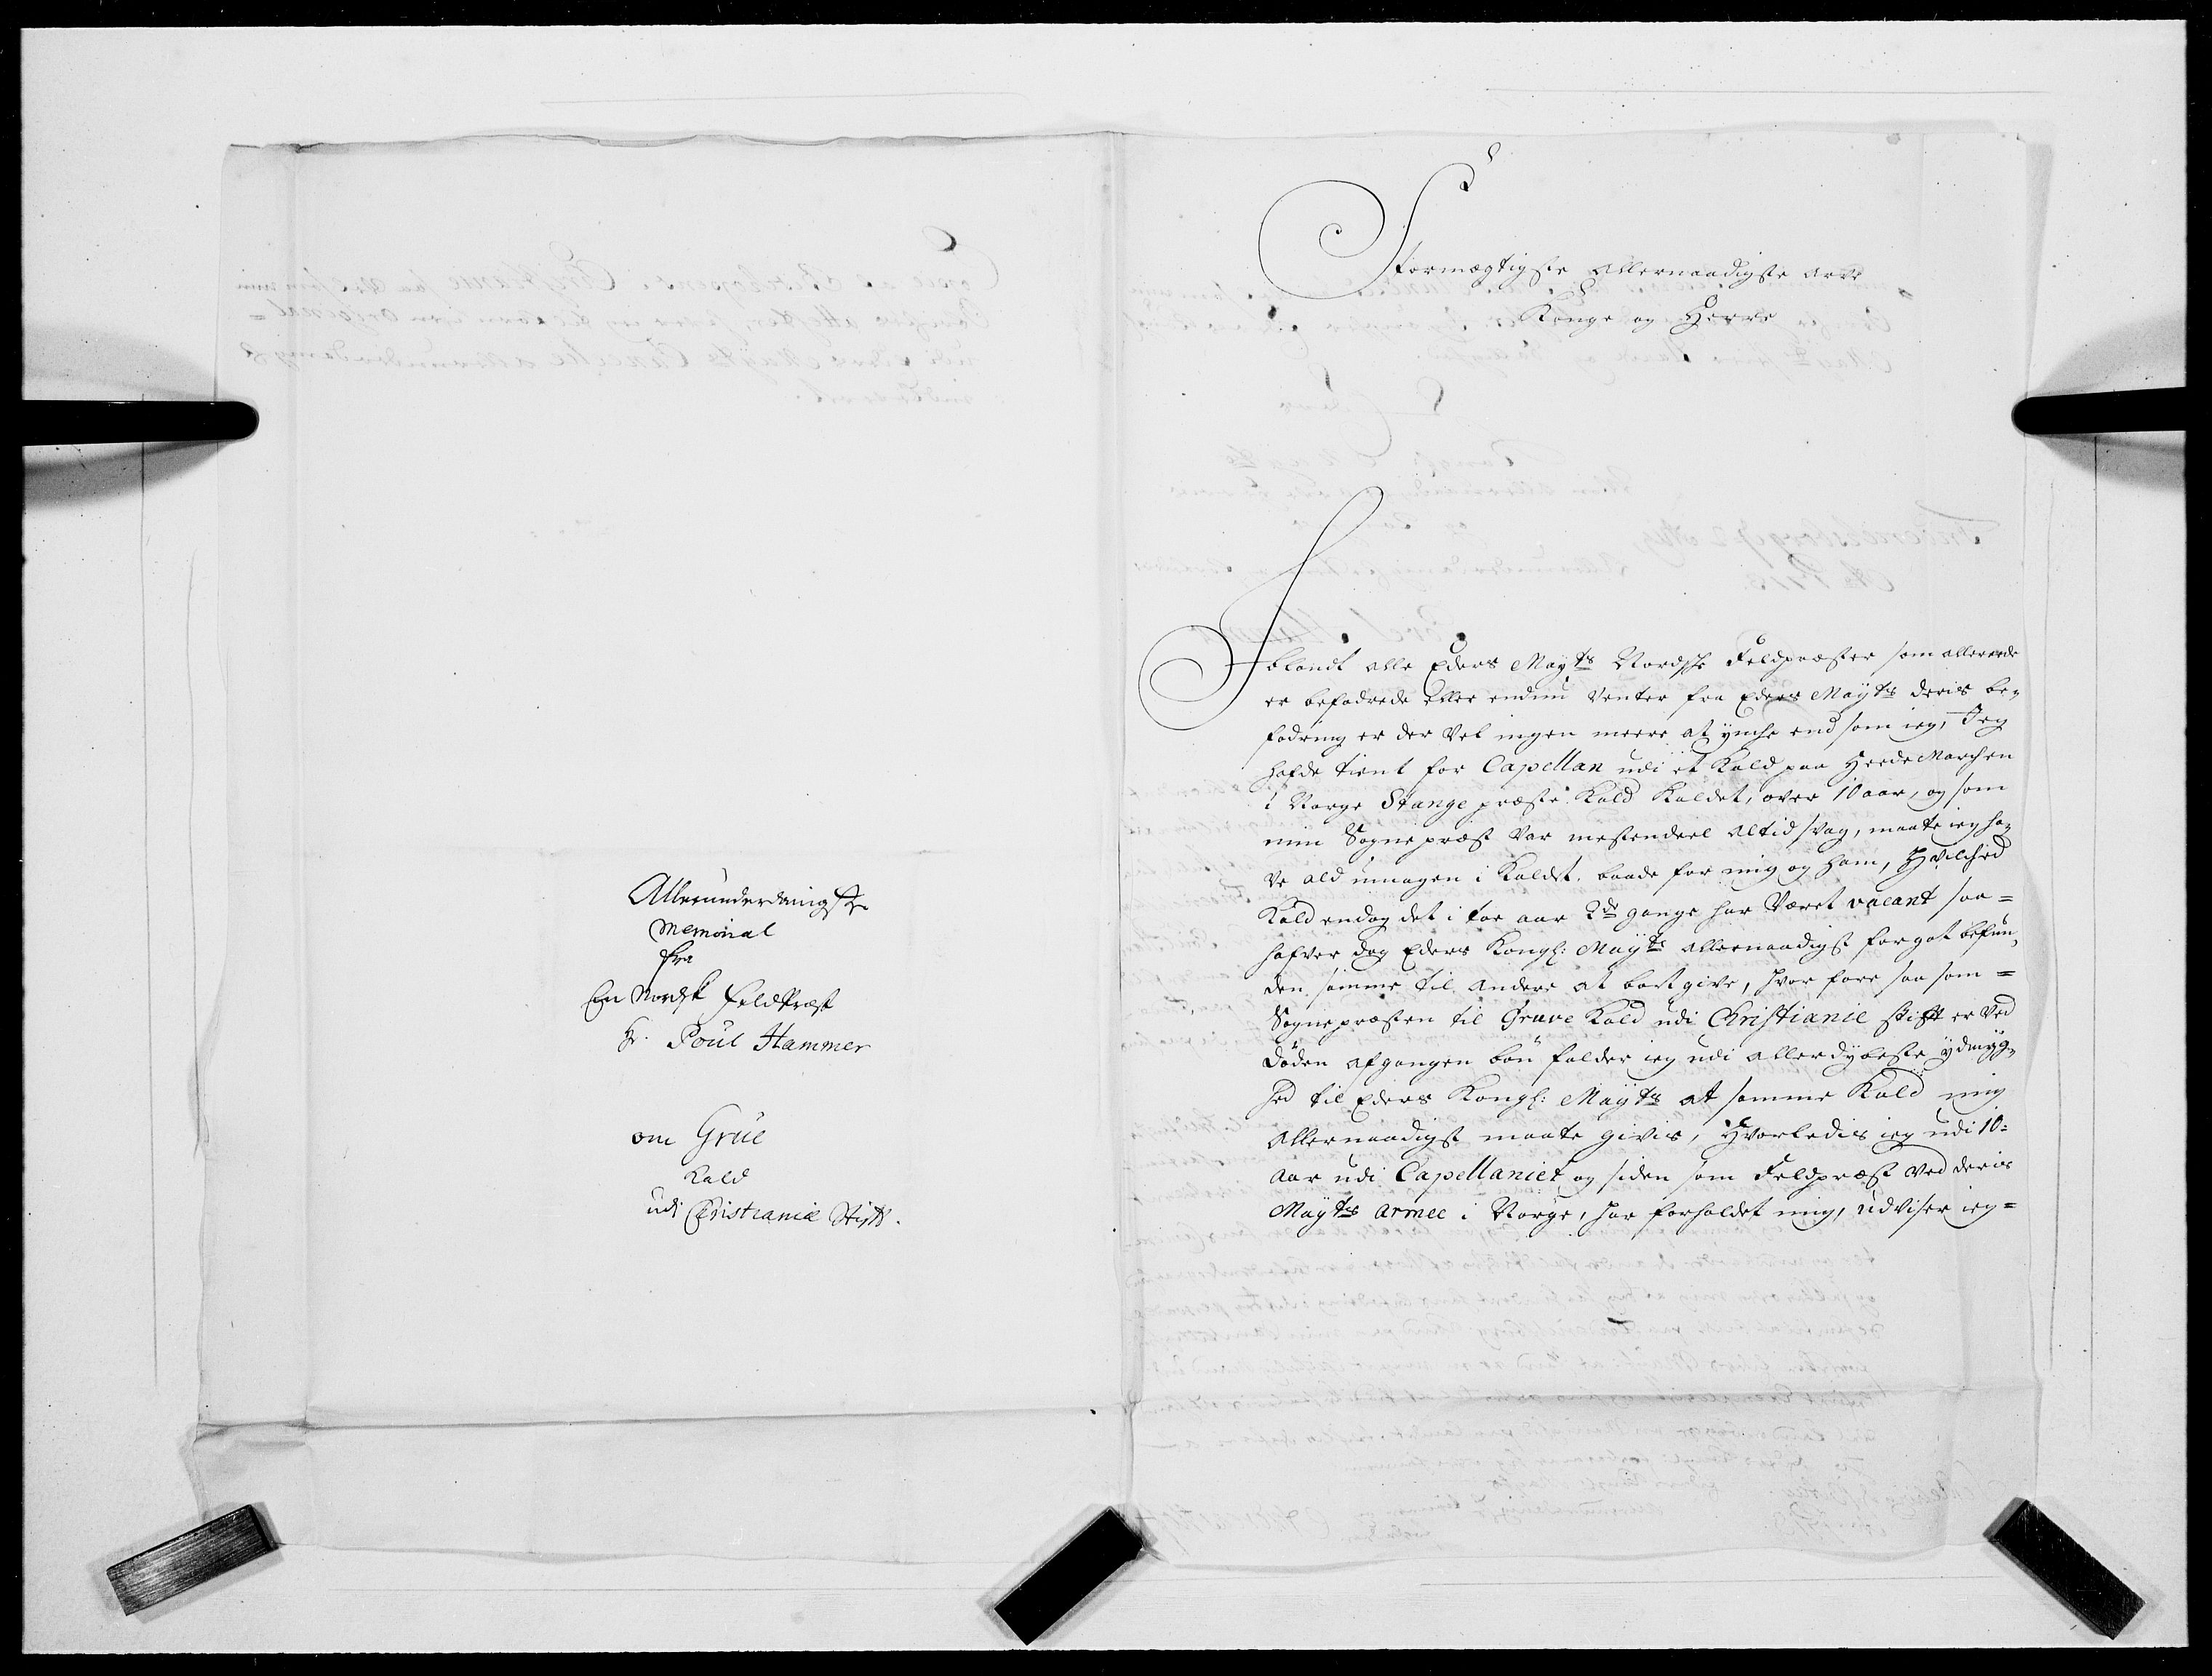 Allerunderdanigste
Memorial
fra
En Nordsk feldPræst
Hr. Poul Hammer
om Grue
Kald
udi Christianiæ Stift.
Stormægtigste Allernaadigste Arve
Konge og Herre
Iblandt alle Eders Mayts Nordske Feldpræster som allereede
er befodrede eller endnu venter fra Eders Mayts deris be-
fodring er der vel ingen meere at ynche end som ieg, Jeg
hafde tient for Capellan udi et Kald paa HeedeMarchen
i Norge Stange præste Kald Kaldet, over 10 aar, og som
min Sognepræst var mestendeel altid svag, maate ieg ha-
ve ald umagen i Kaldet baade for mig og ham, Hvilched
Kald endog det i toe aar 2de gange har Været vacant saa=
hafver dog Eders Kongl: Mayts allernaadigst for got befun-
den samme til andere at bortgive, hvor fore saa som =
Sognepræsten til Gruve Kald udi Christianie stift er Ved
döden afgangen bön falder ieg udi allerdybeste ydmyg-
hed til Eders Kongl: Mayts at samme Kald mig
allernaadigst maate givis, Hvorledis ieg udi 10:
aar udi Capellaniet og siden som Feldpræst ved deris
Mayts armee i Norge, har forholdet mig, udviser ieg=